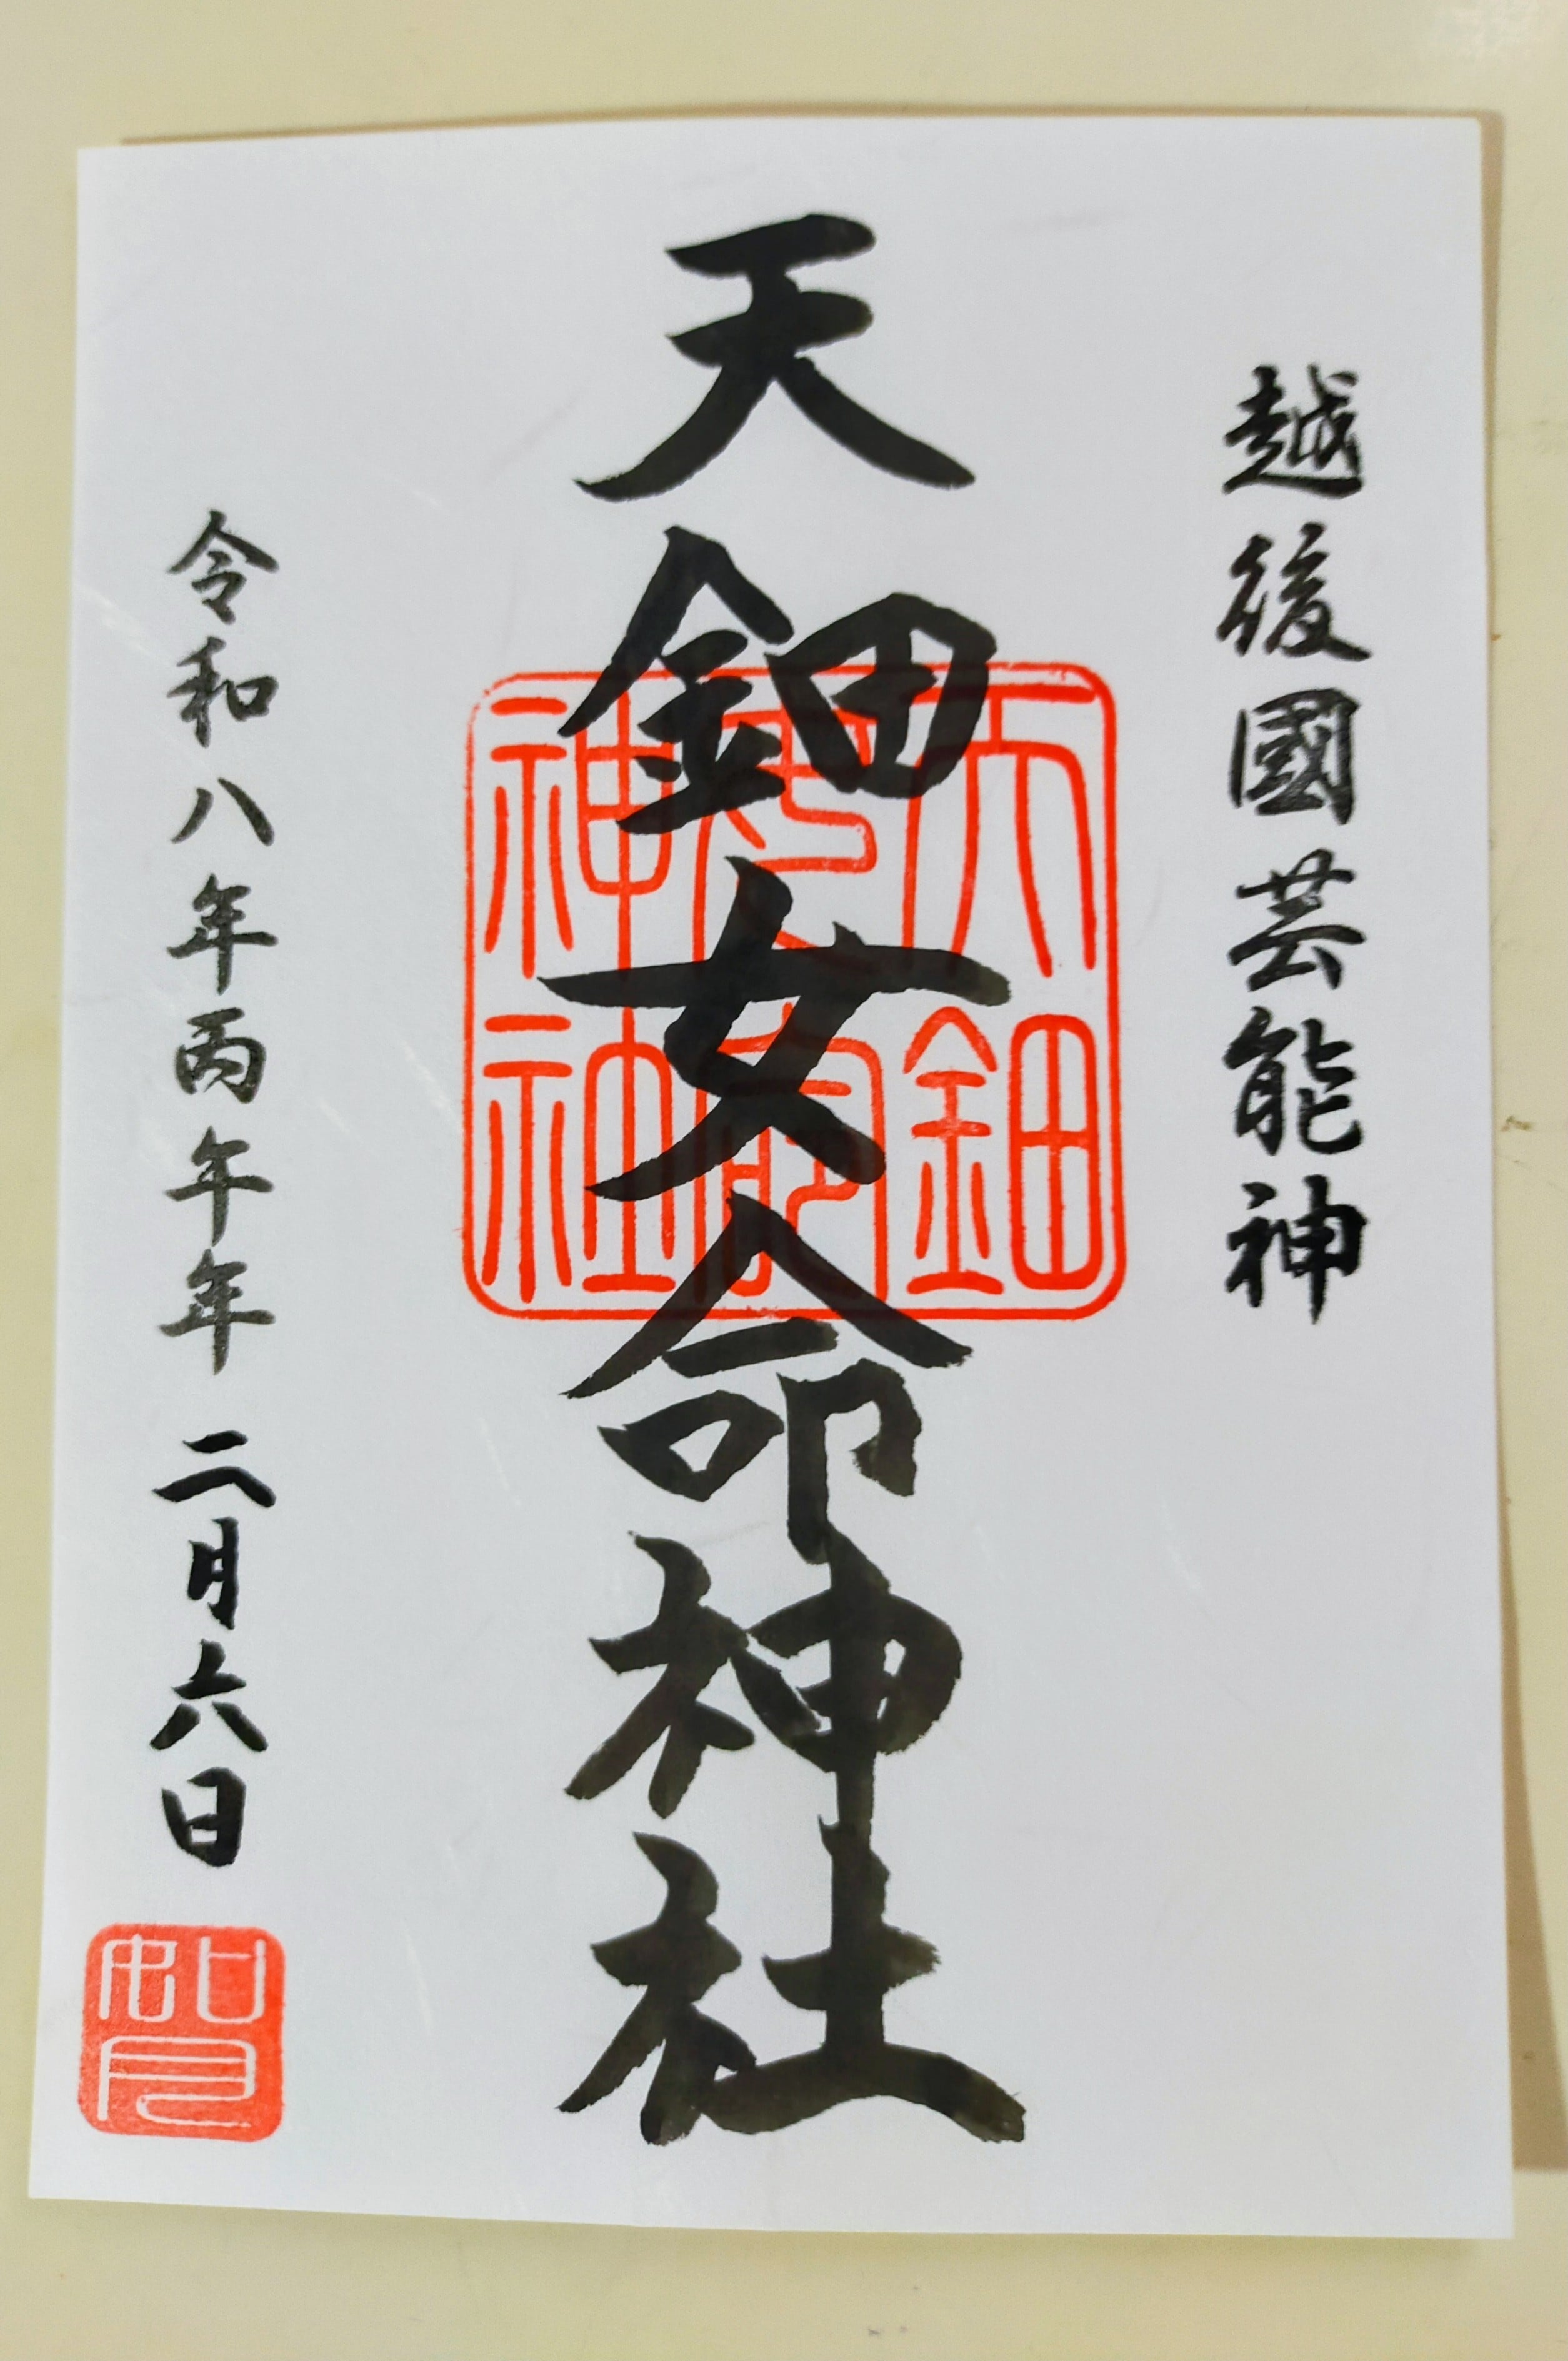 越後國芸能神
天鈿女命神社
天鈿女命神社
令和八年丙午年 二月六日